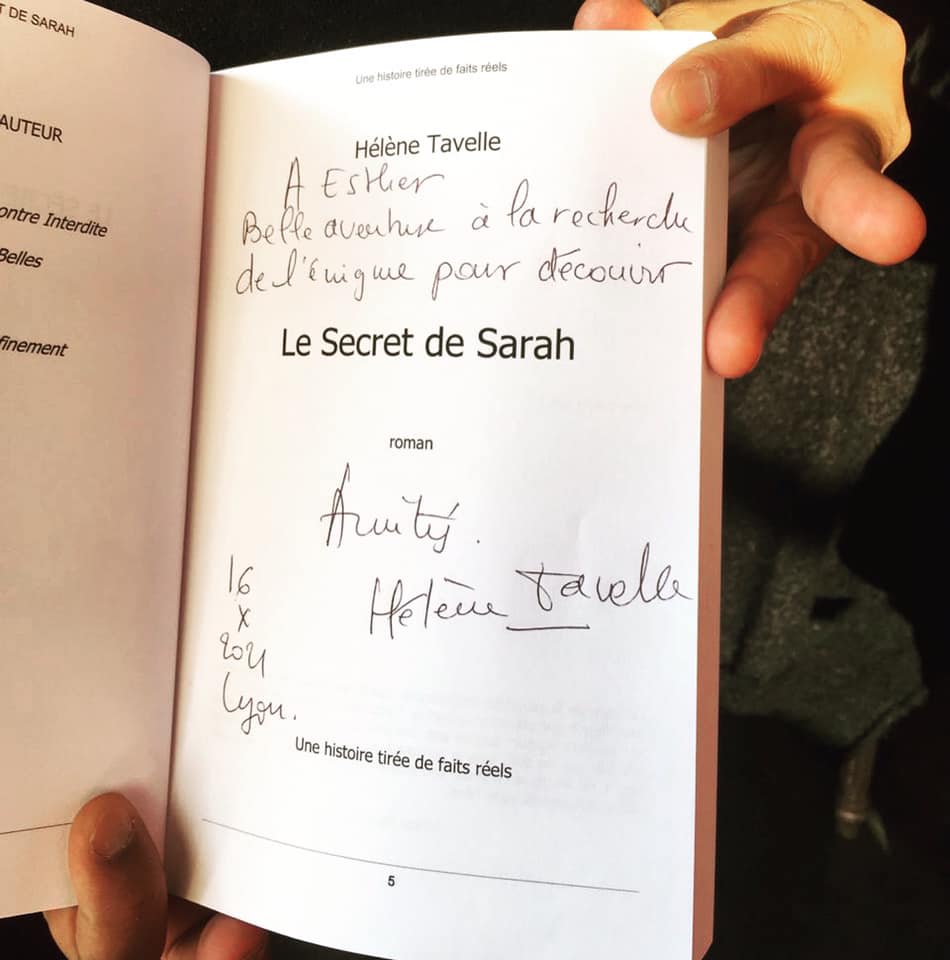 T DE SARAH
AUTEUR
ontre Interdite
Belles
finement
Une histoire tirée de faits réels
Hélène Tavelle
A Esther
Belle aventure à la recherche
de l'énigme pour découvrir
Le Secret de Sarah
roman
Amitié.
Hélène Tavelle
16
X
2021
Lyon.
Une histoire tirée de faits réels
5